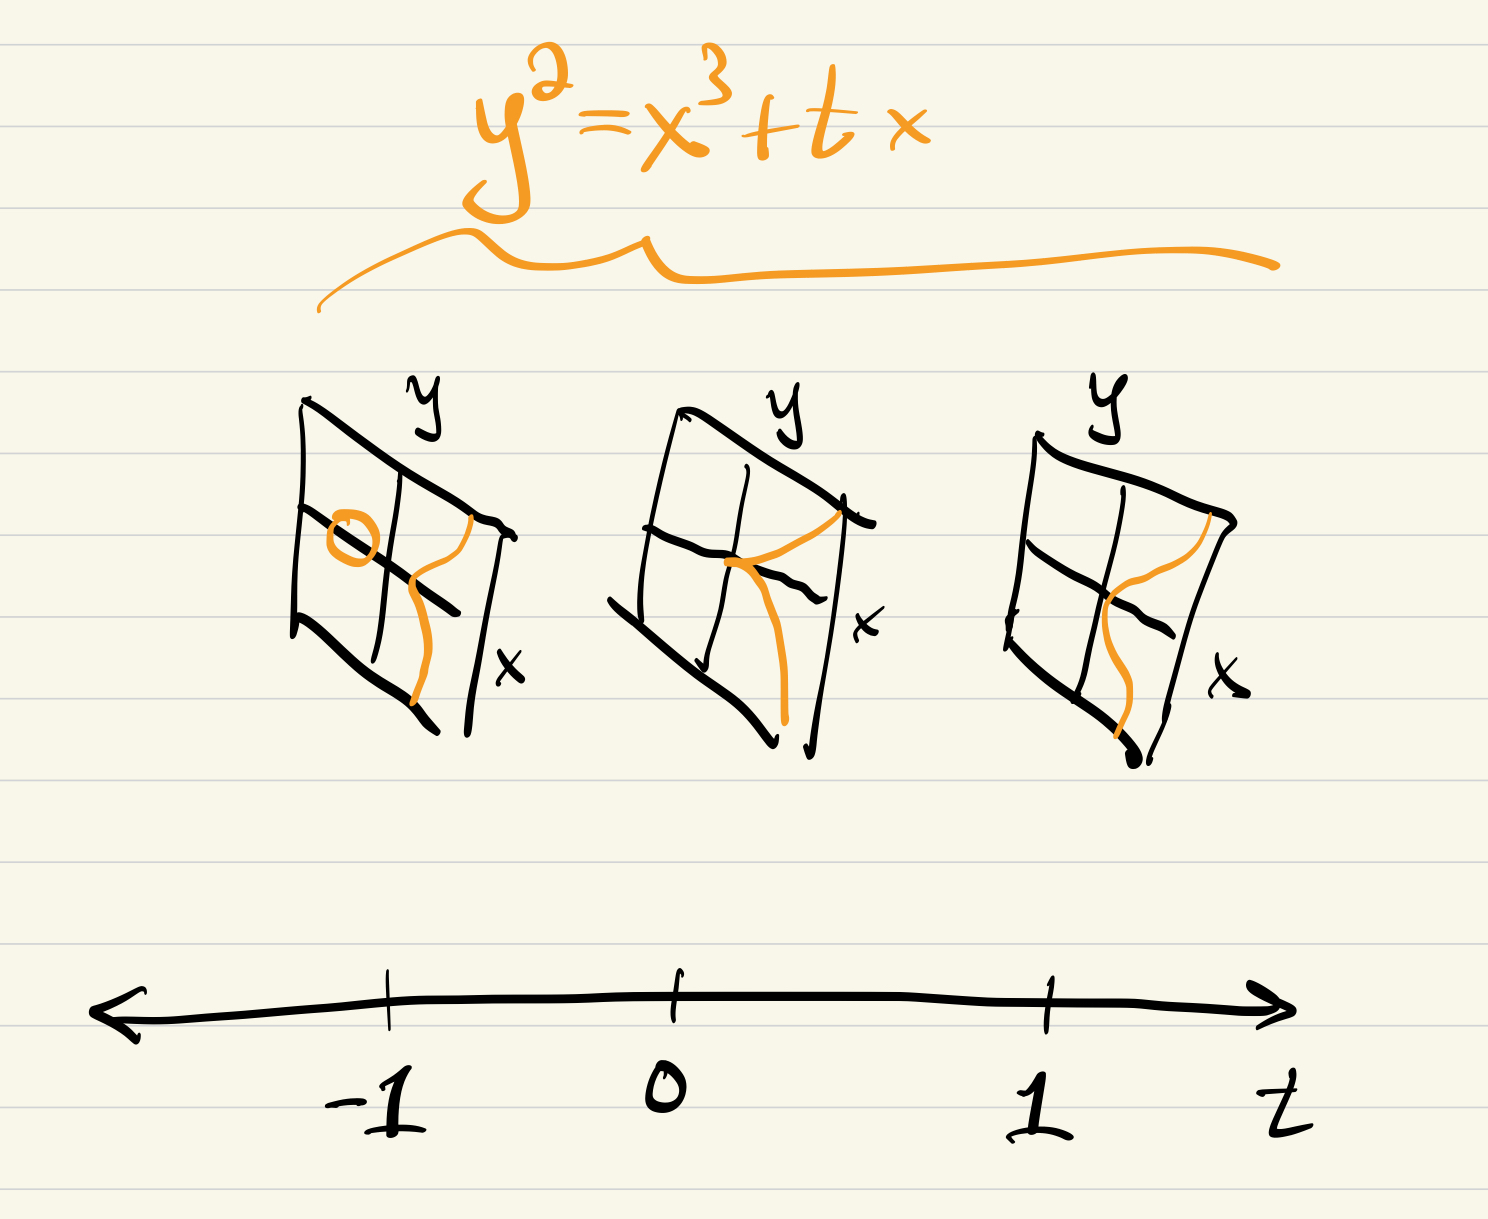 y²=x³+tx
y y y
x x x
-1 0 1 t